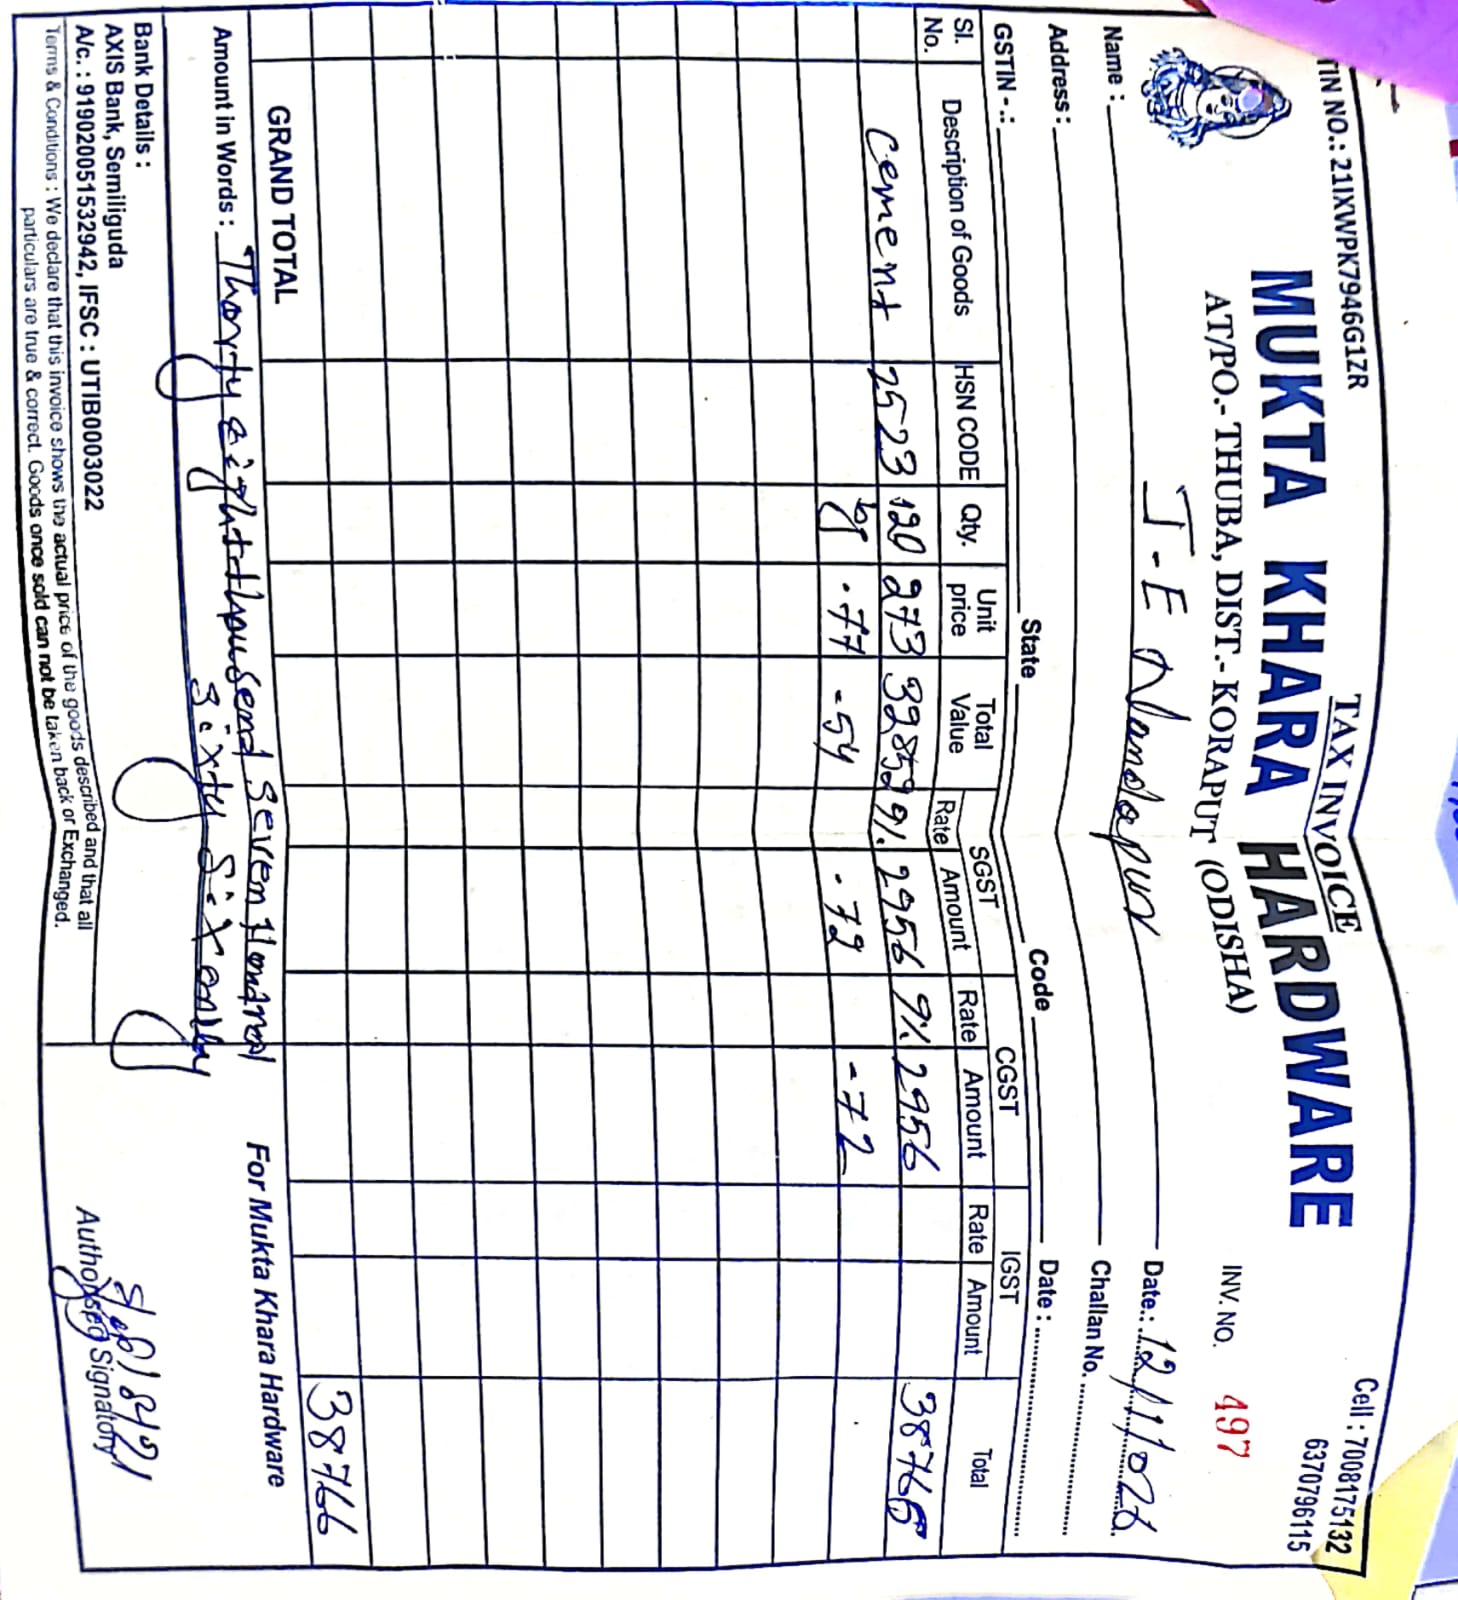 TIN NO.: 21IXWPK7946G1ZR
TAX INVOICE
Cell : 7008175132
6370796115
MUKTA KHARA HARDWARE
AT/PO.- THUBA, DIST.- KORAPUT (ODISHA)
INV. NO. 497
Name : J-E Nandapur
Date.: 12/1/026
Address :
Challan No.
GSTIN -.: State Code Date :
Sl. No. Description of Goods HSN CODE Qty. Unit price Total Value SGST Rate Amount CGST Rate Amount IGST Rate Amount Total
Cement 2523 120 273 32852 9% 2956 9% 2956 38766
.77 -54 .72 -72
GRAND TOTAL 38766
Amount in Words : Thorty eight thousend seven Hondred
sixty six only
For Mukta Khara Hardware
Bank Details :
AXIS Bank, Semiliguda
A/c. : 919020051532942, IFSC : UTIB0003022
Terms & Conditions : We declare that this invoice shows the actual price of the goods described and that all
particulars are true & correct. Goods once sold can not be taken back or Exchanged.
Authorised Signatory